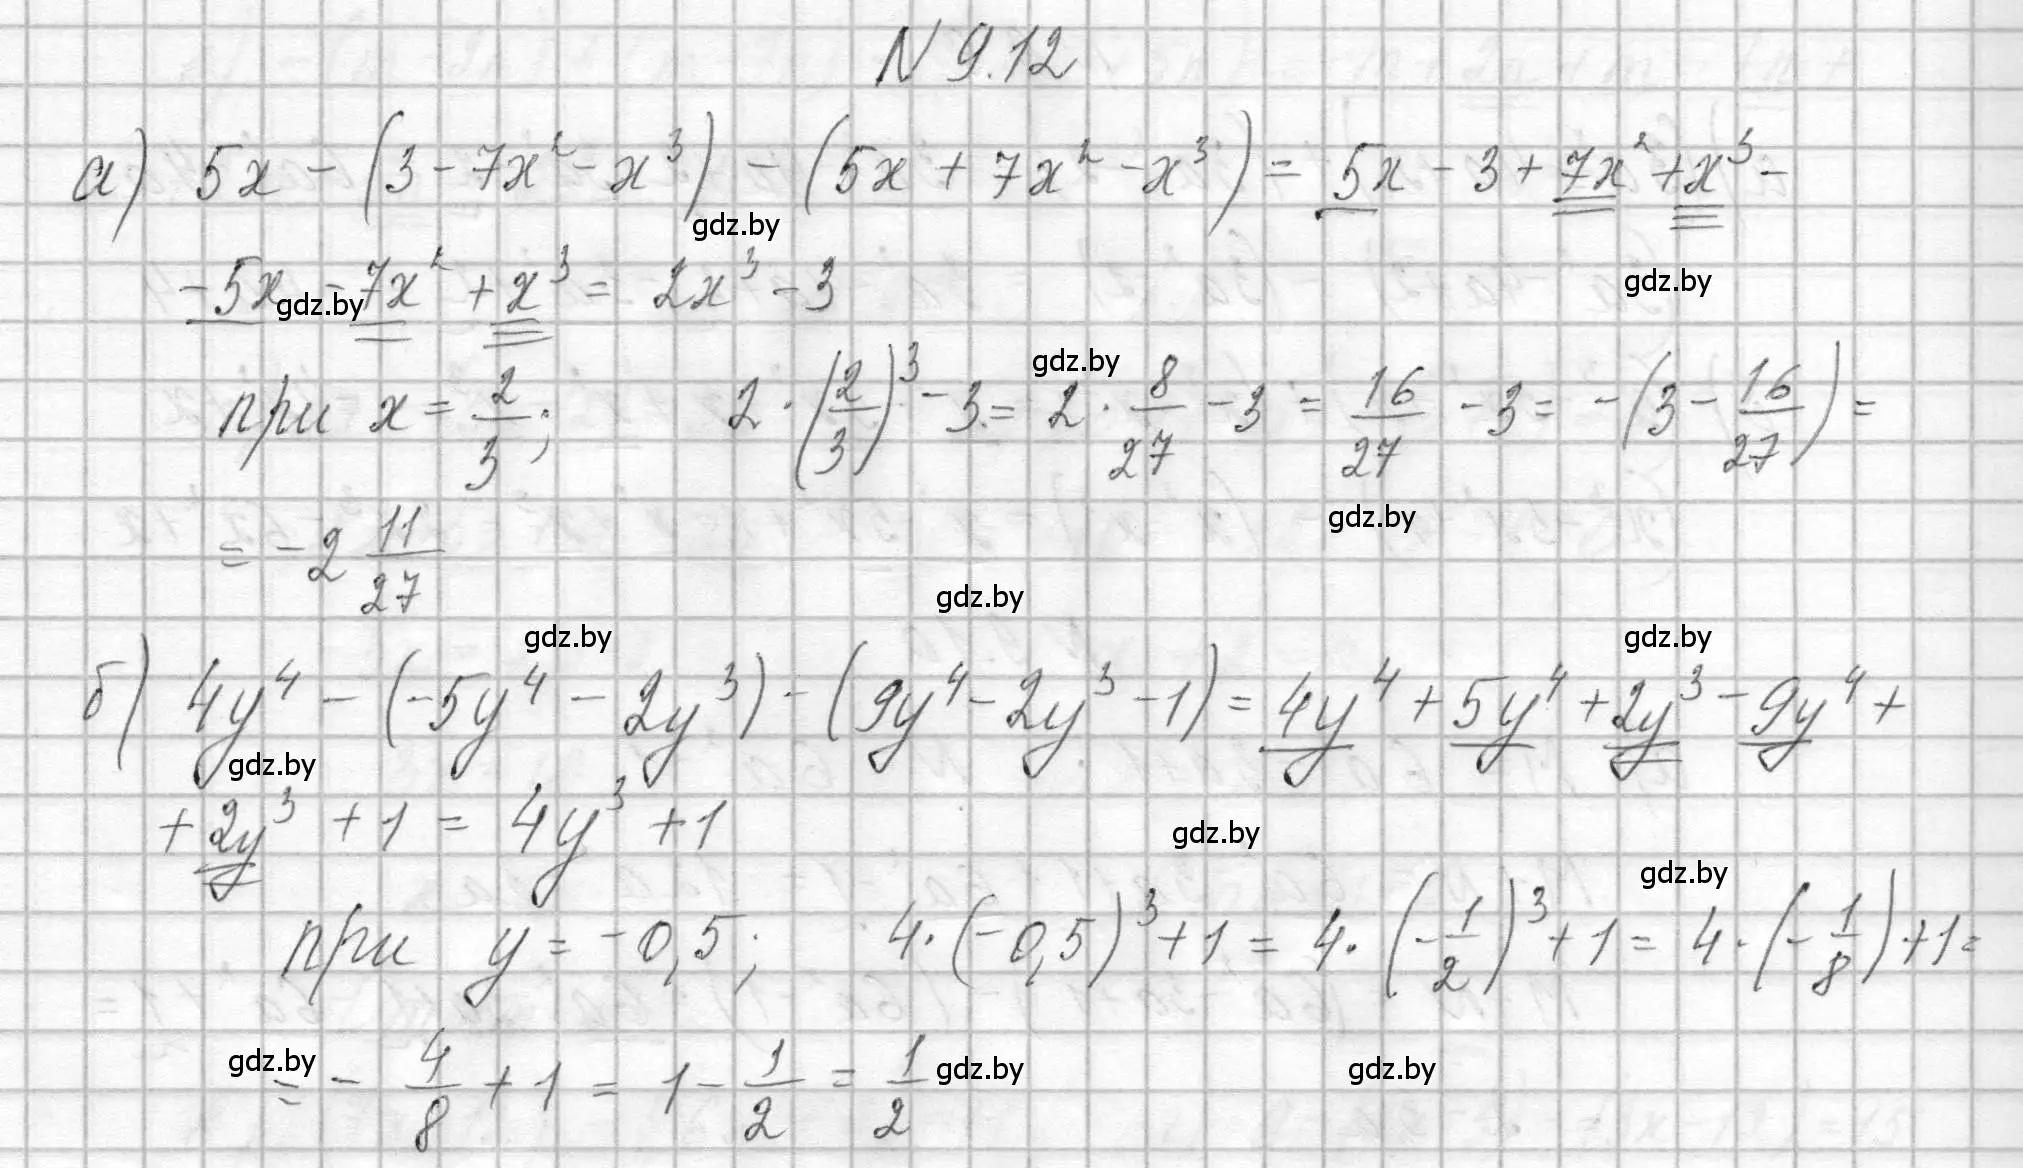 N 9.12
а) 5x - (3 - 7x² - x³) - (5x + 7x² - x³) = 5x - 3 + 7x² + x³ -
gdz.by
- 5x - 7x² + x³ = 2x³ - 3
gdz.by
gdz.by
при x = 2/3; 2 · (2/3)³ - 3 = 2 · 8/27 - 3 = 16/27 - 3 = -(3 - 16/27) =
gdz.by
gdz.by
= -2 11/27
gdz.by
gdz.by
gdz.by
б) 4y⁴ - (-5y⁴ - 2y³) - (9y⁴ - 2y³ - 1) = 4y⁴ + 5y⁴ + 2y³ - 9y⁴ +
gdz.by
+ 2y³ + 1 = 4y³ + 1
gdz.by
gdz.by
при y = -0,5; 4 · (-0,5)³ + 1 = 4 · (-1/2)³ + 1 = 4 · (-1/8) + 1 =
gdz.by
= - 4/8 + 1 = 1 - 1/2 = 1/2
gdz.by
gdz.by